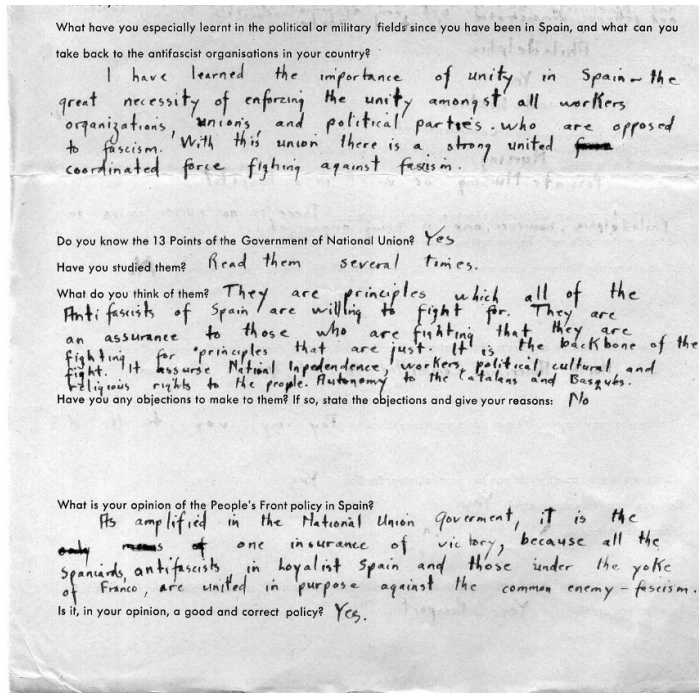 What have you especially learnt in the political or military fields since you have been in Spain, and what can you
take back to the antifascist organisations in your country?
I have learned the importance of unity in Spain - the
great necessity of enforcing the unity amongst all workers
organizations, unions and political parties. who are opposed
to fascism. With this union there is a strong united
coordinated force fighing against fascism.
Do you know the 13 Points of the Government of National Union? Yes
Have you studied them? Read them several times.
What do you think of them? They are principles which all of the
Antifascists of Spain are willing to fight for. They are
an assurance to those who are fighting that they are
fighting for principles that are just. It is the backbone of the
fight. It assurse National Inpedendence, workers, political, cultural and
religious rights to the people. Autonomy to the Catalans and Basqubs.
Have you any objections to make to them? If so, state the objections and give your reasons: No
What is your opinion of the People's Front policy in Spain?
As amplified in the National Union Goverment, it is the
only means of one insurance of victory, because all the
Spaniards, antifascists in Loyalist Spain and those under the yoke
of Franco, are united in purpose against the common enemy - fascism.
Is it, in your opinion, a good and correct policy? Yes.